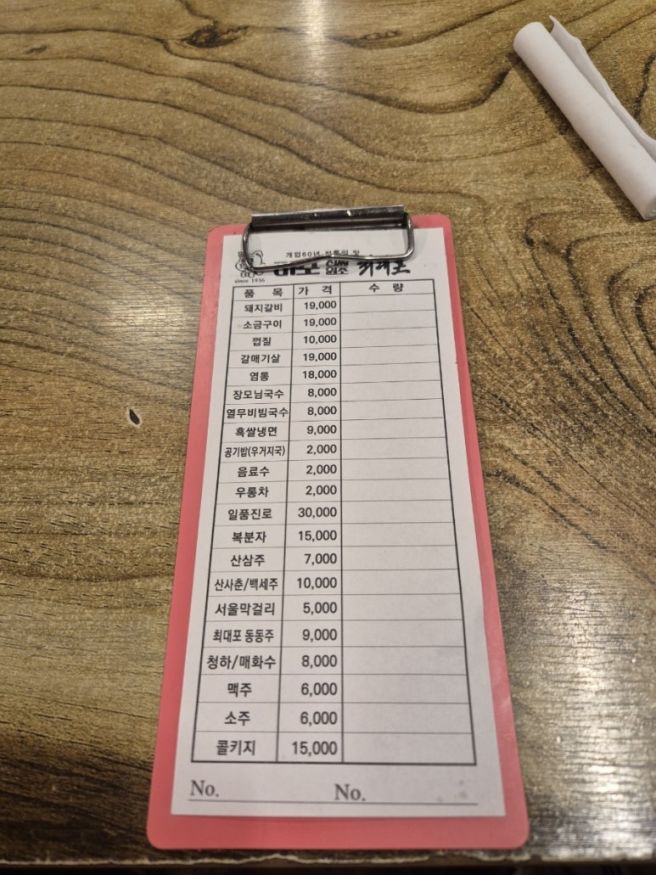 개업60년 전통의 맛
since 1956
품 목 가 격 수 량
돼지갈비 19,000
소금구이 19,000
껍질 10,000
갈매기살 19,000
염통 18,000
장모님국수 8,000
열무비빔국수 8,000
흑쌀냉면 9,000
공기밥(우거지국) 2,000
음료수 2,000
우롱차 2,000
일품진로 30,000
복분자 15,000
산삼주 7,000
산사춘/백세주 10,000
서울막걸리 5,000
최대포 동동주 9,000
청하/매화수 8,000
맥주 6,000
소주 6,000
콜키지 15,000
No. No.